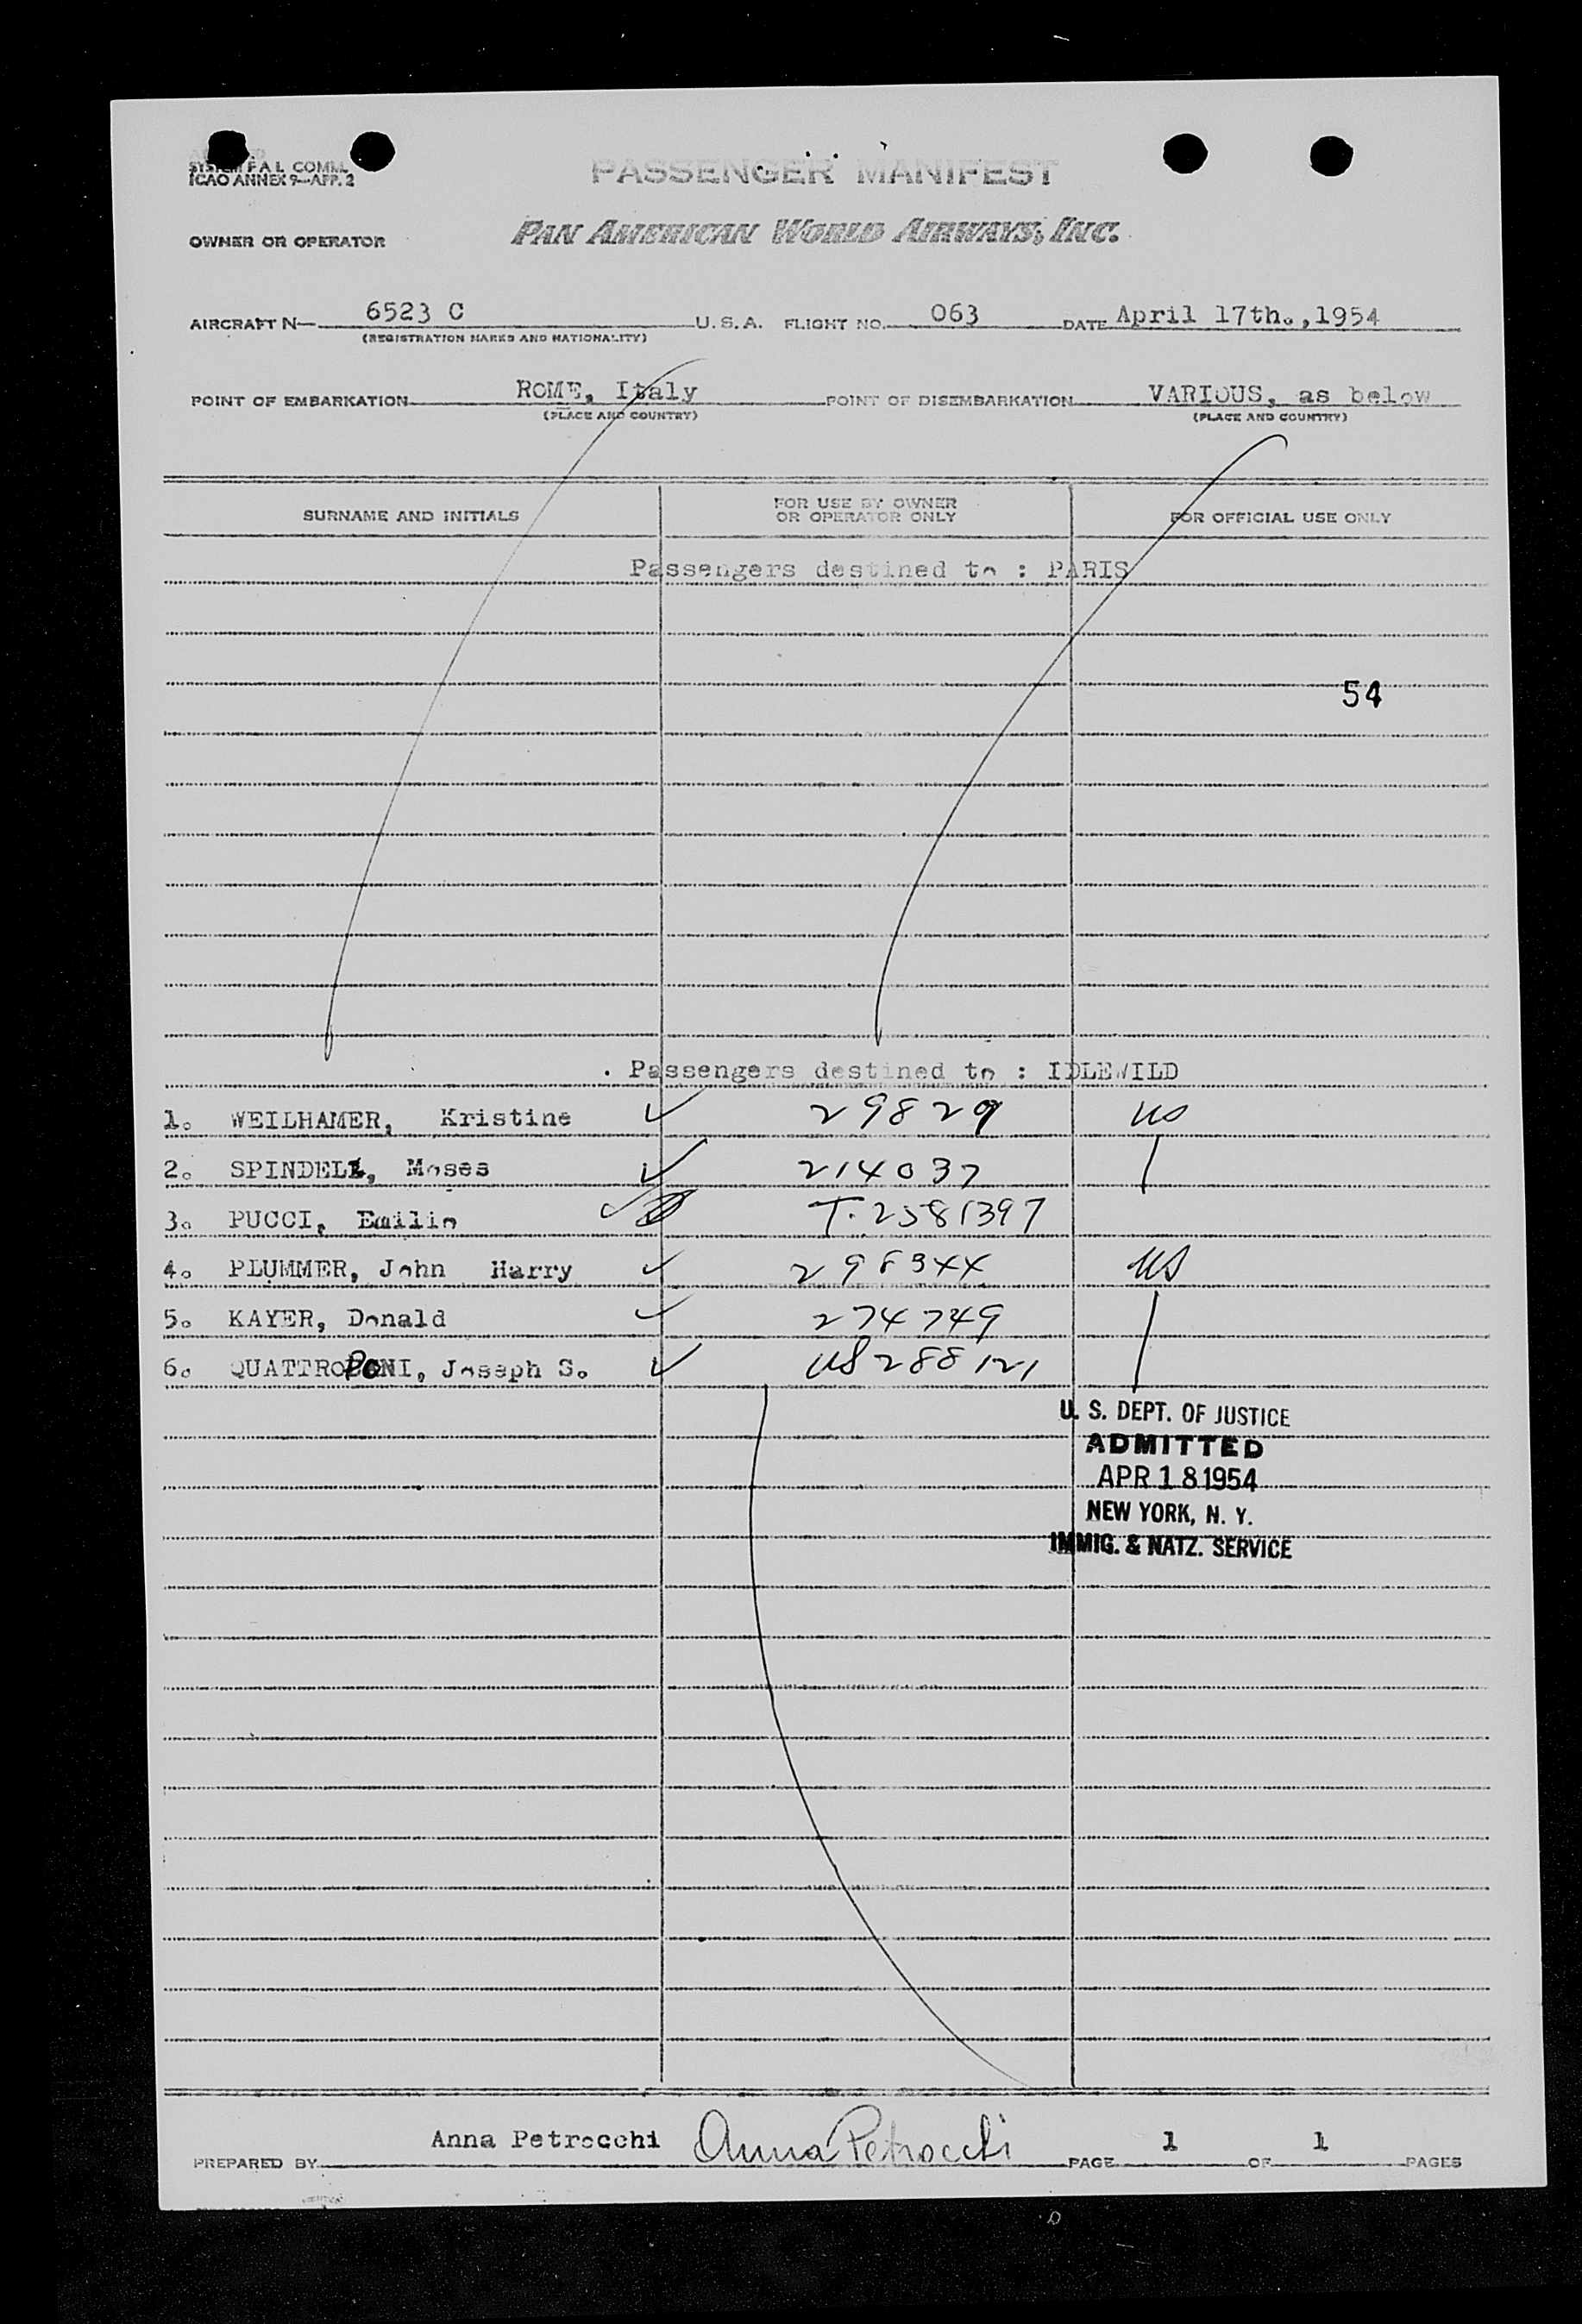 SYSTEM F A L COMM.
ICAO ANNEX 9—APP. 2
PASSENGER MANIFEST
OWNER OR OPERATOR PAN AMERICAN WORLD AIRWAYS, INC.
AIRCRAFT N— 6523 C U.S.A. FLIGHT NO. 063 DATE April 17th.,1954
(REGISTRATION MARKS AND NATIONALITY)
POINT OF EMBARKATION ROME, Italy POINT OF DISEMBARKATION VARIOUS, as below
(PLACE AND COUNTRY) (PLACE AND COUNTRY)
SURNAME AND INITIALS FOR USE BY OWNER OR OPERATOR ONLY FOR OFFICIAL USE ONLY
Passengers destined to : PARIS
54
Passengers destined to : IDLEWILD
1. WEILHAMER, Kristine ✓ 29829 US
2. SPINDEL, Moses ✓ 214037
3. PUCCI, Emilio ✓ T-2581397
4. PLUMMER, John Harry ✓ 298344 US
5. KAYER, Donald ✓ 274749
6. QUATTROPONI, Joseph S. ✓ US 288121
U. S. DEPT. OF JUSTICE
ADMITTED
APR 18 1954
NEW YORK, N. Y.
IMMIG. & NATZ. SERVICE
PREPARED BY Anna Petrocchi Anna Petrocchi PAGE 1 OF 1 PAGES